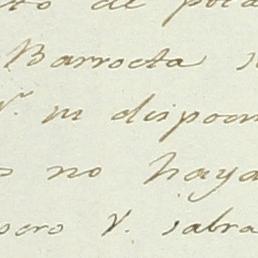 to de pot
Barroeta s
V. m dispoen
s no haya
sero V. sabra